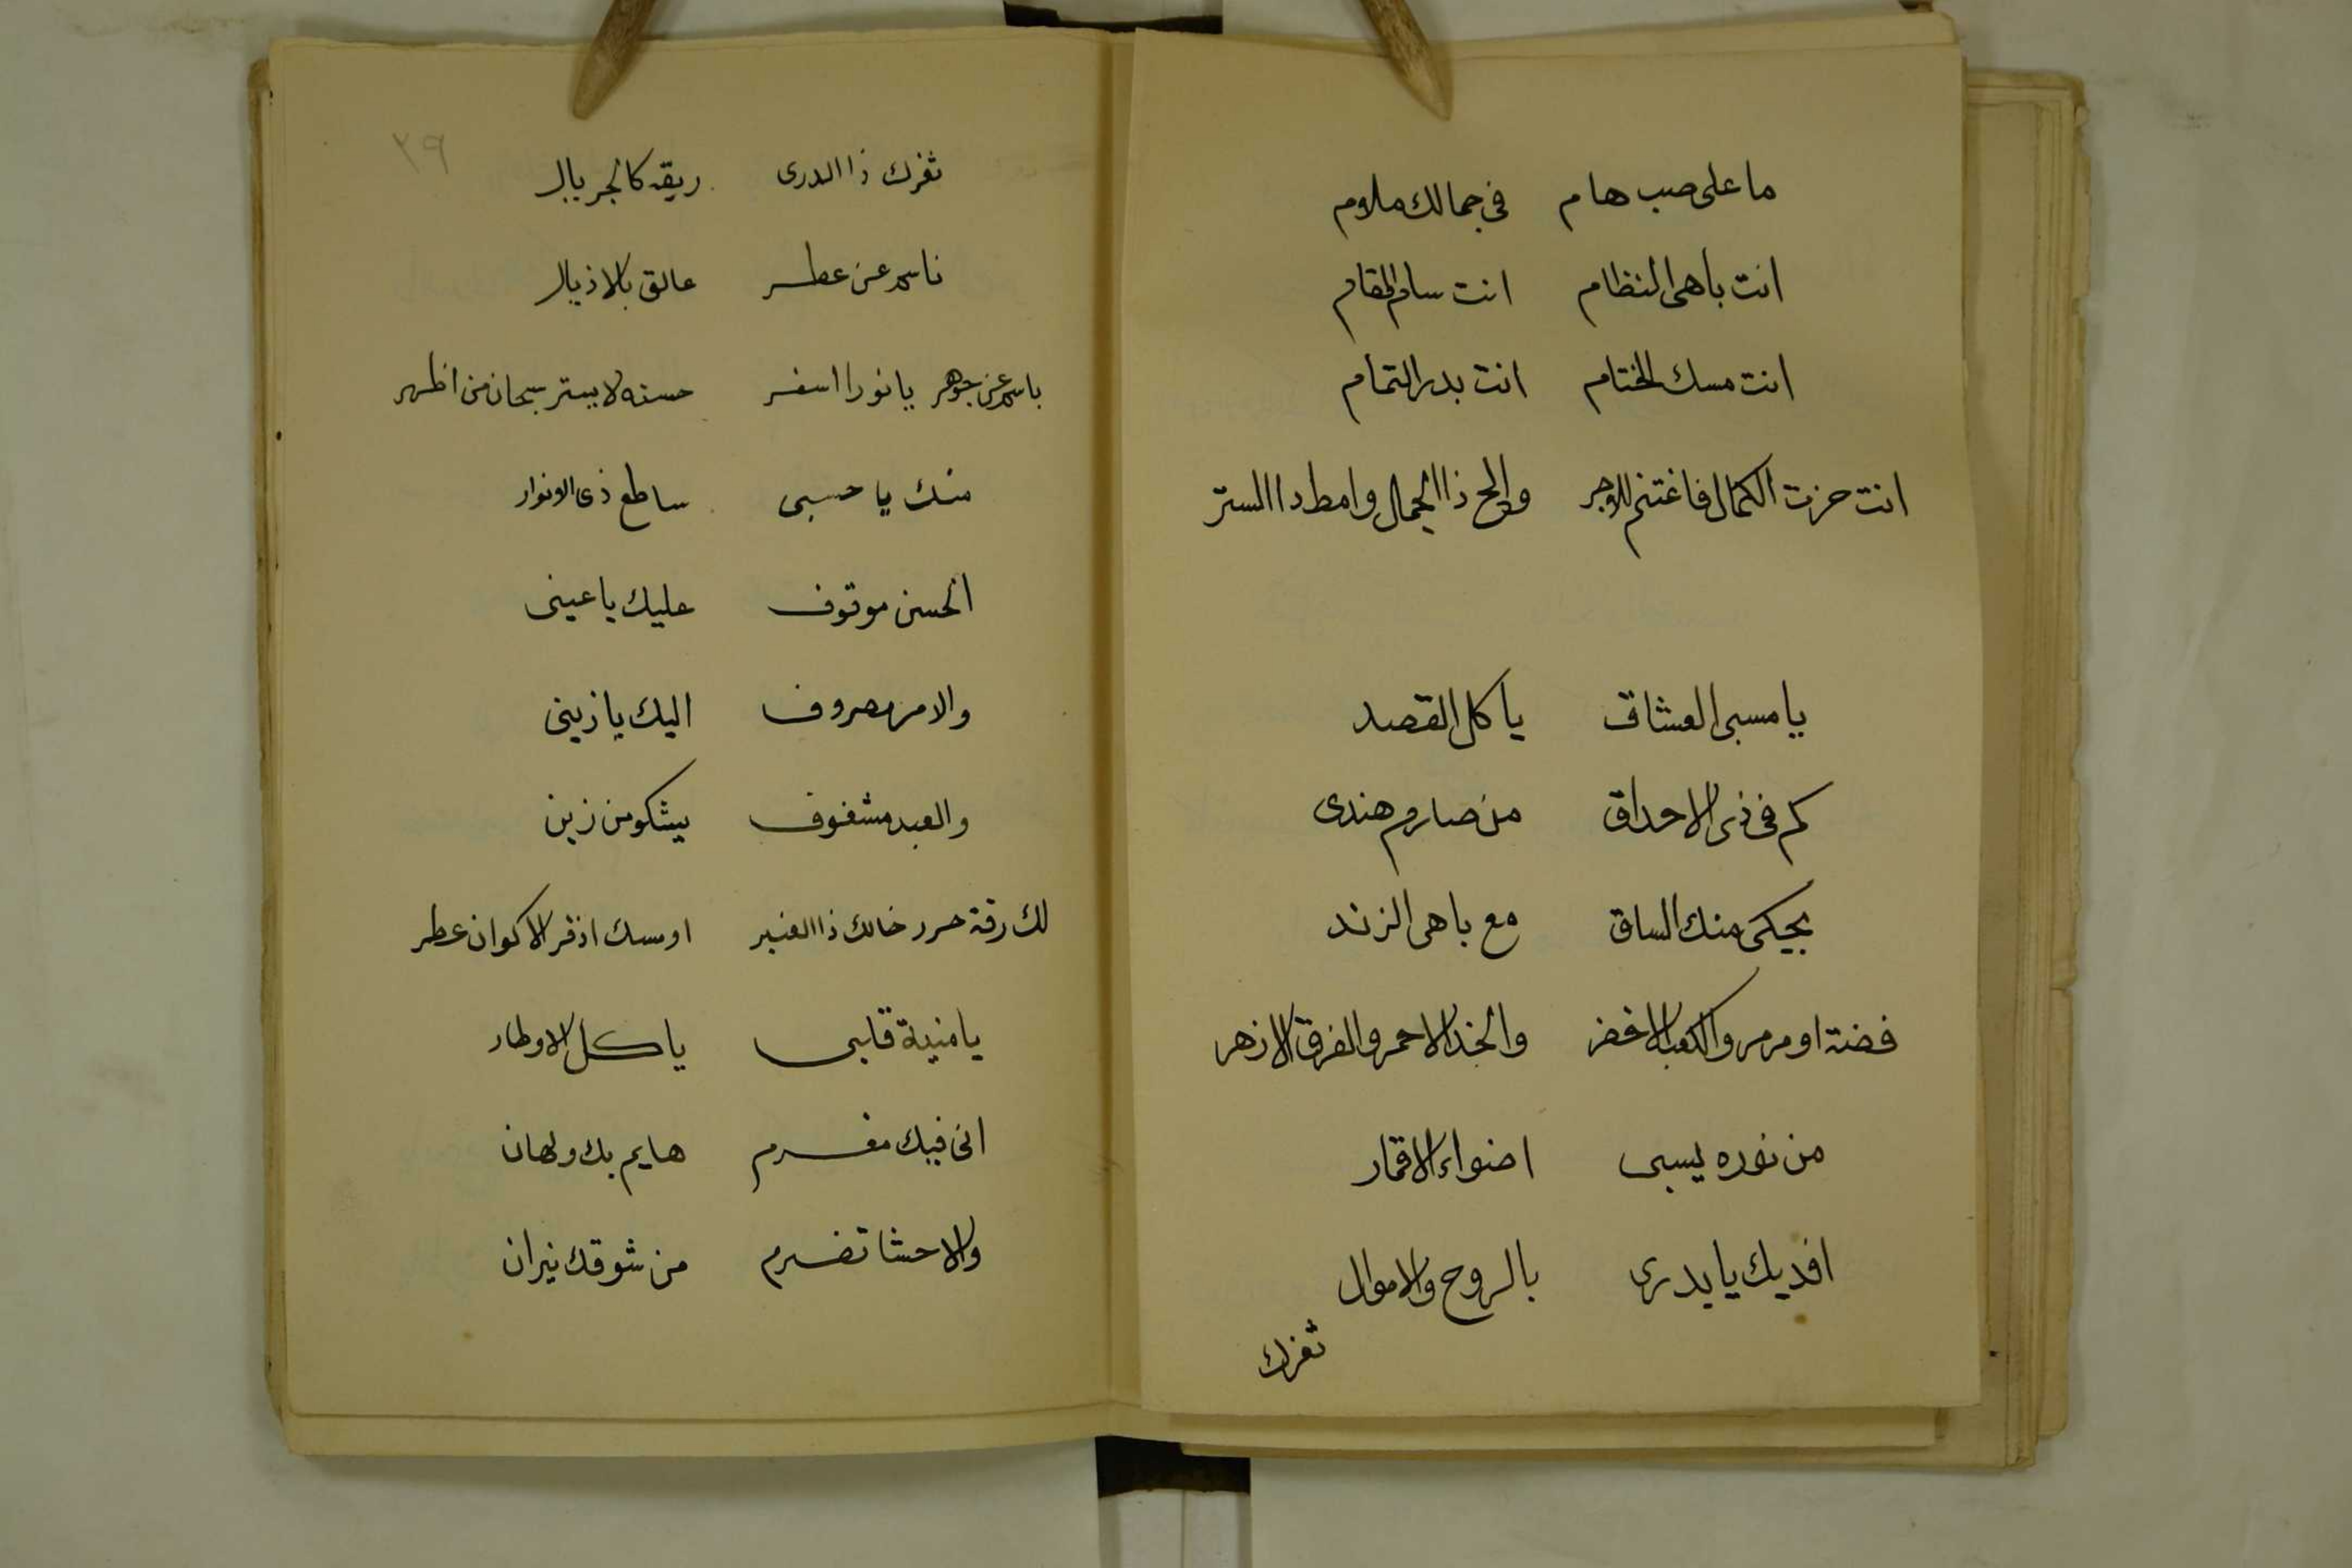 ما على صب هام في جمالك ملام
انت باهى النظام انت سام المقام
انت مسك الختام انت بدر التمام
انت حزت الكمال فاغتنم للاجر والمح ذا الجمال وامط دا الستر
يا مسبى العشاق يا كل القصد
كم فى ذى الاحداق من صارم هندى
يحكى منك الساق مع باهى الزند
فضة او مرمر والكعب الاخضر والخد الاحمر والفرق الازهر
من نوره يسبى اضواء الاقمار
افديك يا بدرى بالروح والاموال
ثغرك
٢٩
ثغرك ذا الدرى ريقه كالجريال
ناسم عن عطر عالق بالاذيال
باسم عن جوهر يا نورا اسفر حسنه لا يستر سبحان من اظهر
منك يا حسبى ساطع ذى الانوار
الحسن موقوف عليك يا عينى
والامر مصروف اليك يا زينى
والعبد مشغوف يشكو من زين
لك رقة حرر خالك ذا العنبر او مسك اذفر الاكوان عطر
يا منية قلبى يا كل الاوطار
انى فيك مغرم هايم بك ولهان
والاحشا تضرم من شوقك نيران